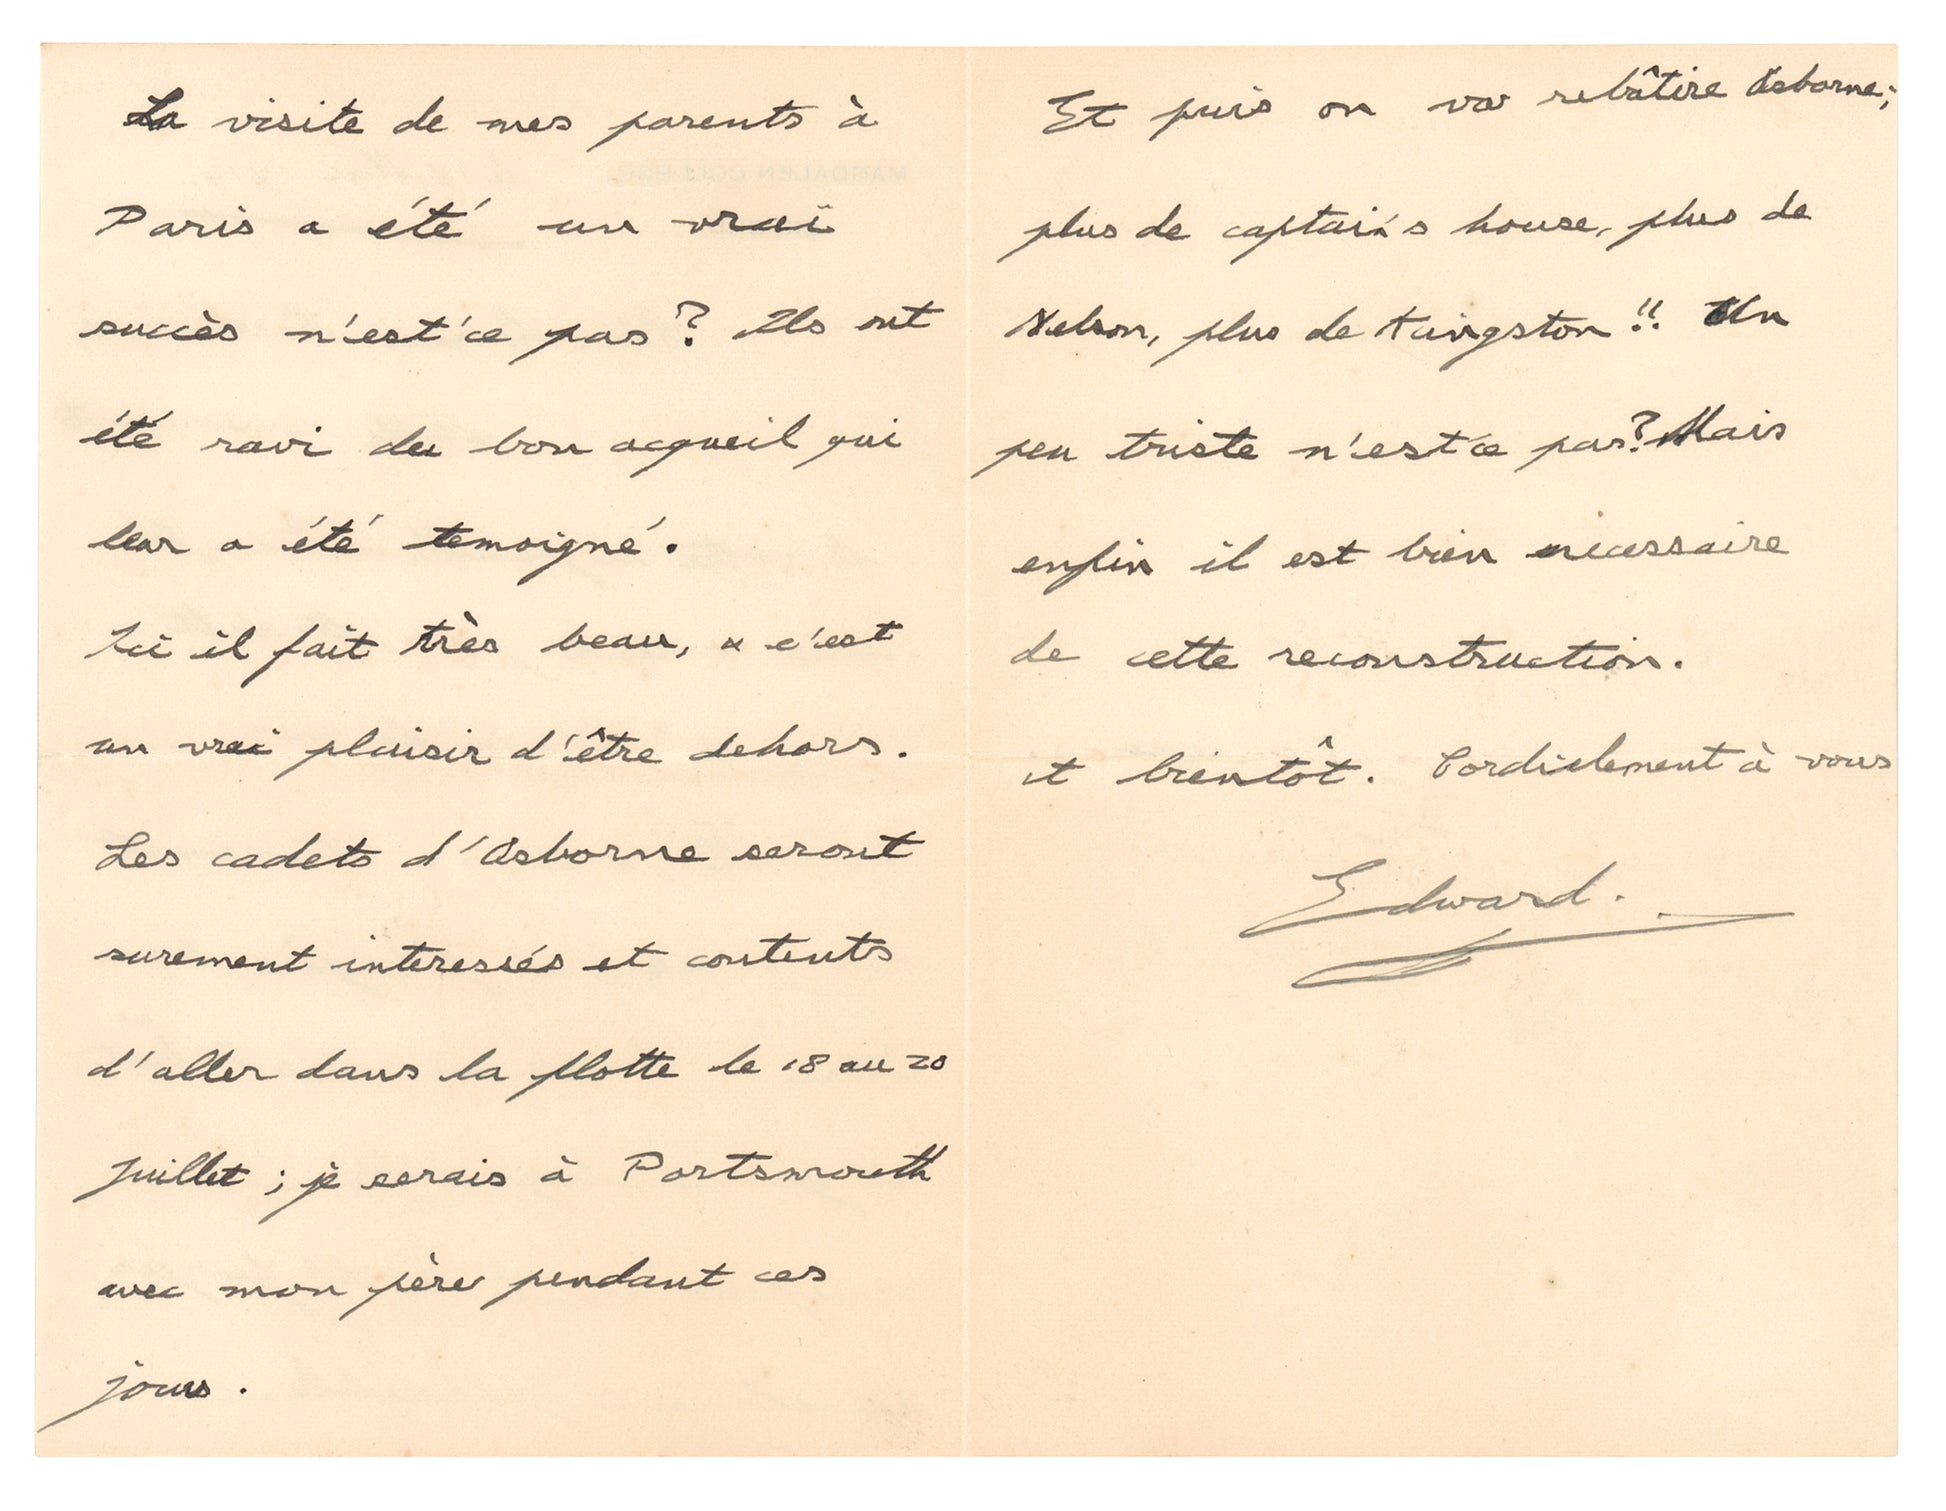 La visite de mes parents à
Paris a été un vrai
succès n'est'ce pas? Ils ont
été ravi du bon acqueil qui
leur a été temoigné.
Ici il fait très beau, & c'est
un vrai plaisir d'être dehors.
Les cadets d'Osborne seront
surement interessés et contents
d'aller dans la flotte le 18 au 20
Juillet; je serais à Portsmouth
avec mon père pendant ces
jours.
Et puis on va rebâtire Osborne;
plus de captain's house, plus de
Nelson, plus de Kingston!! Un
peu triste n'est'ce pas? Mais
enfin il est bien necessaire
de cette reconstruction.
et bientôt. Cordielement à vous
Edward.